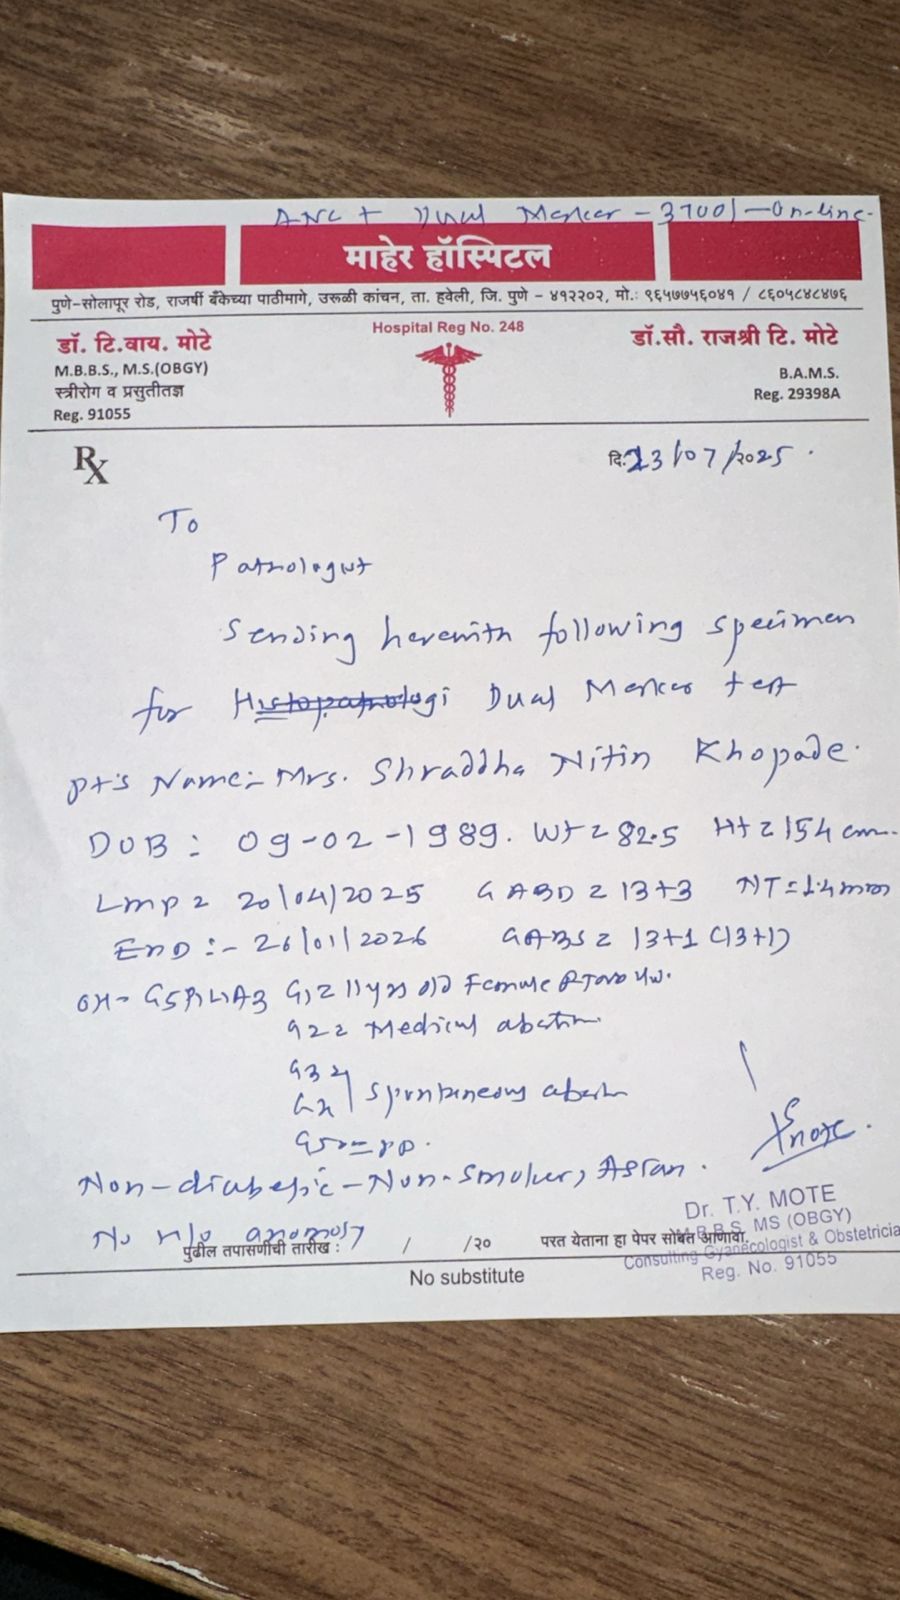 ANC + Dual Marker - 3700/- On-line.
माहेर हॉस्पिटल
पुणे-सोलापूर रोड, राजर्षी बँकेच्या पाठीमागे, उरूळी कांचन, ता. हवेली, जि. पुणे - ४१२२०२, मो.: ९६५७७५६०४१ / ८६०५८४८४७६
Hospital Reg No. 248
डॉ. टि.वाय. मोटे
M.B.B.S., M.S.(OBGY)
स्त्रीरोग व प्रसुतीतज्ञ
Reg. 91055
डॉ.सौ. राजश्री टि. मोटे
B.A.M.S.
Reg. 29398A
Rx
दि. 23/07/२०25.
To
Pathologist
Sending herewith following specimen
for Histopathologi Dual Marker test
Pt's Name:- Mrs. Shraddha Nitin Khopade.
DOB : 09-02-1989. Wt = 82.5 Ht = 154 cm.
LMP = 20/04/2025 GABD = 13+3 NT = 1.4 mm
EDD :- 26/01/2026 GABS = 13+1 (13+1)
OH - G5P1L1A3 G1 = 11 yrs old Female
G2 = Medical abortion
G3
G4 Spontaneous abortion
G5 = PP.
Non-diabetic - Non-smoker, Asian.
No H/o anomaly
Dr. T.Y. MOTE
M.B.B.S. MS (OBGY)
Consulting Gyanecologist & Obstetricia
Reg. No. 91055
पुढील तपासणीची तारीख : / /२० परत येताना हा पेपर सोबत आणावा.
No substitute